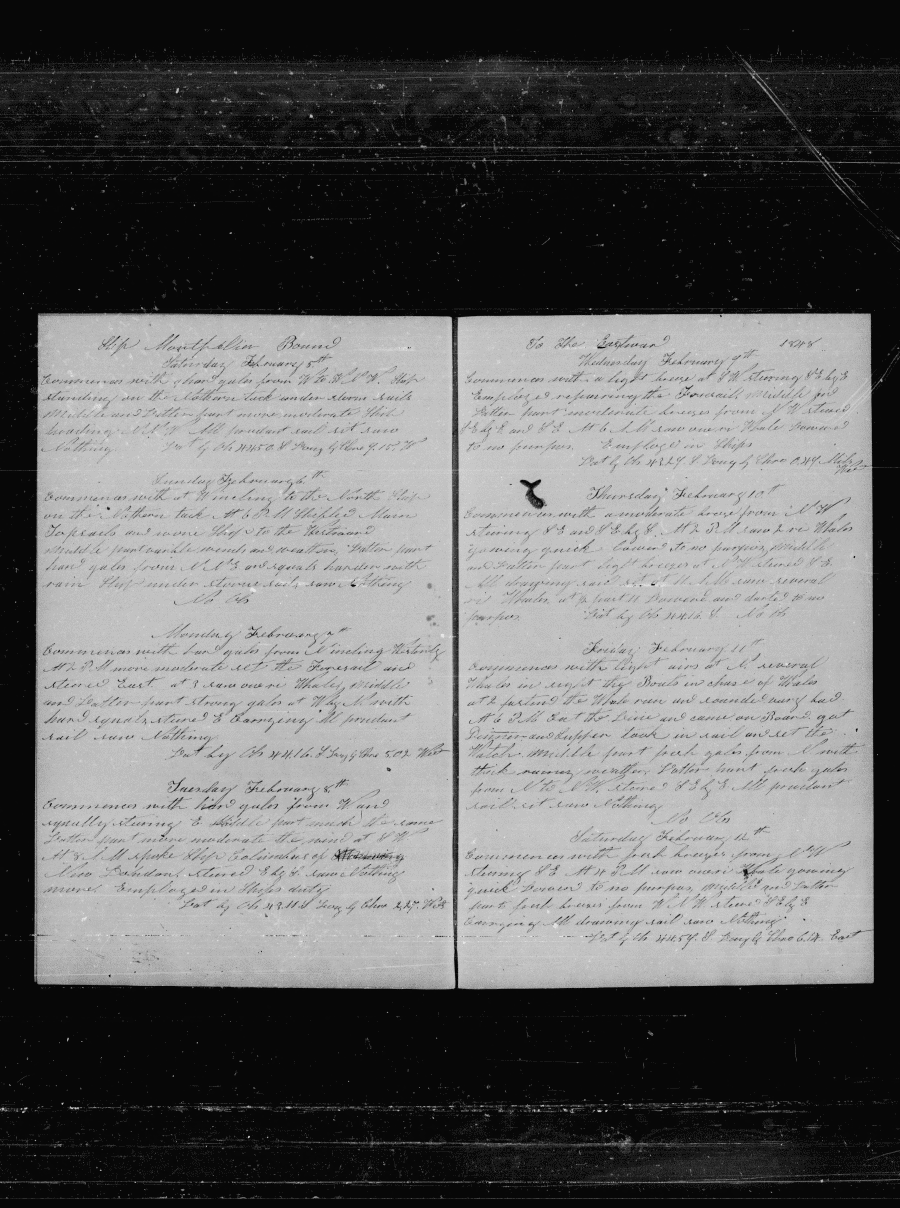 Ship Montpelier Bound
Saturday February 5th
Commences with gales from W to W N W Ship
standing on the Nothern tack under storm sails
Middle and Latter part more moderate Ship
heading N N W All prudent sail set saw
Nothing Lat by Ob 44.50 S Long by Chro 9.15 W
Sunday February 6th
Commences with at W incling to the North Ship
on the Nothern tack At 6 P M Main
Topsails and wore Ship to the Westward
Middle part varible winds and weather Latter part
hard gales from N N E and squals harder with
rain Ship under storm sails saw Nothing
No Ob
Monday February 7th
Commences with gales from N incling Westerly
At 2 P M more moderate set the Foresail and
steared East at 3 saw one ri Whale, Middle
and Latter part strong gales at W by N with
hard squals, steared E Carrying All prudent
sail saw Nothing
Lat by Ob 44.16 S Long by Chro 5.02 West
Tuesday February 8th
Commences with hard gales from W and
squally stearing E Middle part much the same
Latter part more moderate the wind at S W
At 8 A M spoke Ship Columbus of
New London, steared E by S saw Nothing
more Employed in Ships duty
Lat by Ob 43.11 S Long by Chro 2.27 West
To the Eastward 1848
Wednesday February 9th
Commences with a light breeze at S W stearing S E by E
Employed repairing the Foresail, Middle and
Latter part moderate breezes from N W steared
S E by E and S E At 6 A M saw one ri Whale Lowered
to no purpos Employed in Ships
Lat by Ob 43.29 S Long by Chro 0.49
West
Thursday February 10th
Commences with a moderate breeze from N W
stearing S E and S E by S, At 2 P M saw 2 ri Whales
gowing quick lowered to no purpos, Middle
and Latter part light breezes at N W steared S E
All drawing sail set at 11 A M saw several
ri Whales, at past 11 Lowered and darted to no
purpos Lat by Ob 44.14 S No Ob
Friday February 11th
Commences with light airs at N several
Whales in sight the Boats in chase of Whales
at 2 fastend the Whale ran and sounded very bad
At 6 P M Cut the Line and came on Board got
and Supper took in sail and set the
Watch Middle part fresh gales from N with
thick rainy weather Latter part fresh gales
from N to N W, steared S E by E All prudent
sail set saw Nothing
No Ob
Saturday February 12th
Commences with fresh breezes from N W
stearing S E At 4 P M saw one ri Whale gowing
quick Lowered to no purpos, Middle and Latter
part fresh breezes from W N W steared S E by E
Carrying All drawing sail saw Nothing
Lat by Ob 44.59 S Long by Chro 6.14 East